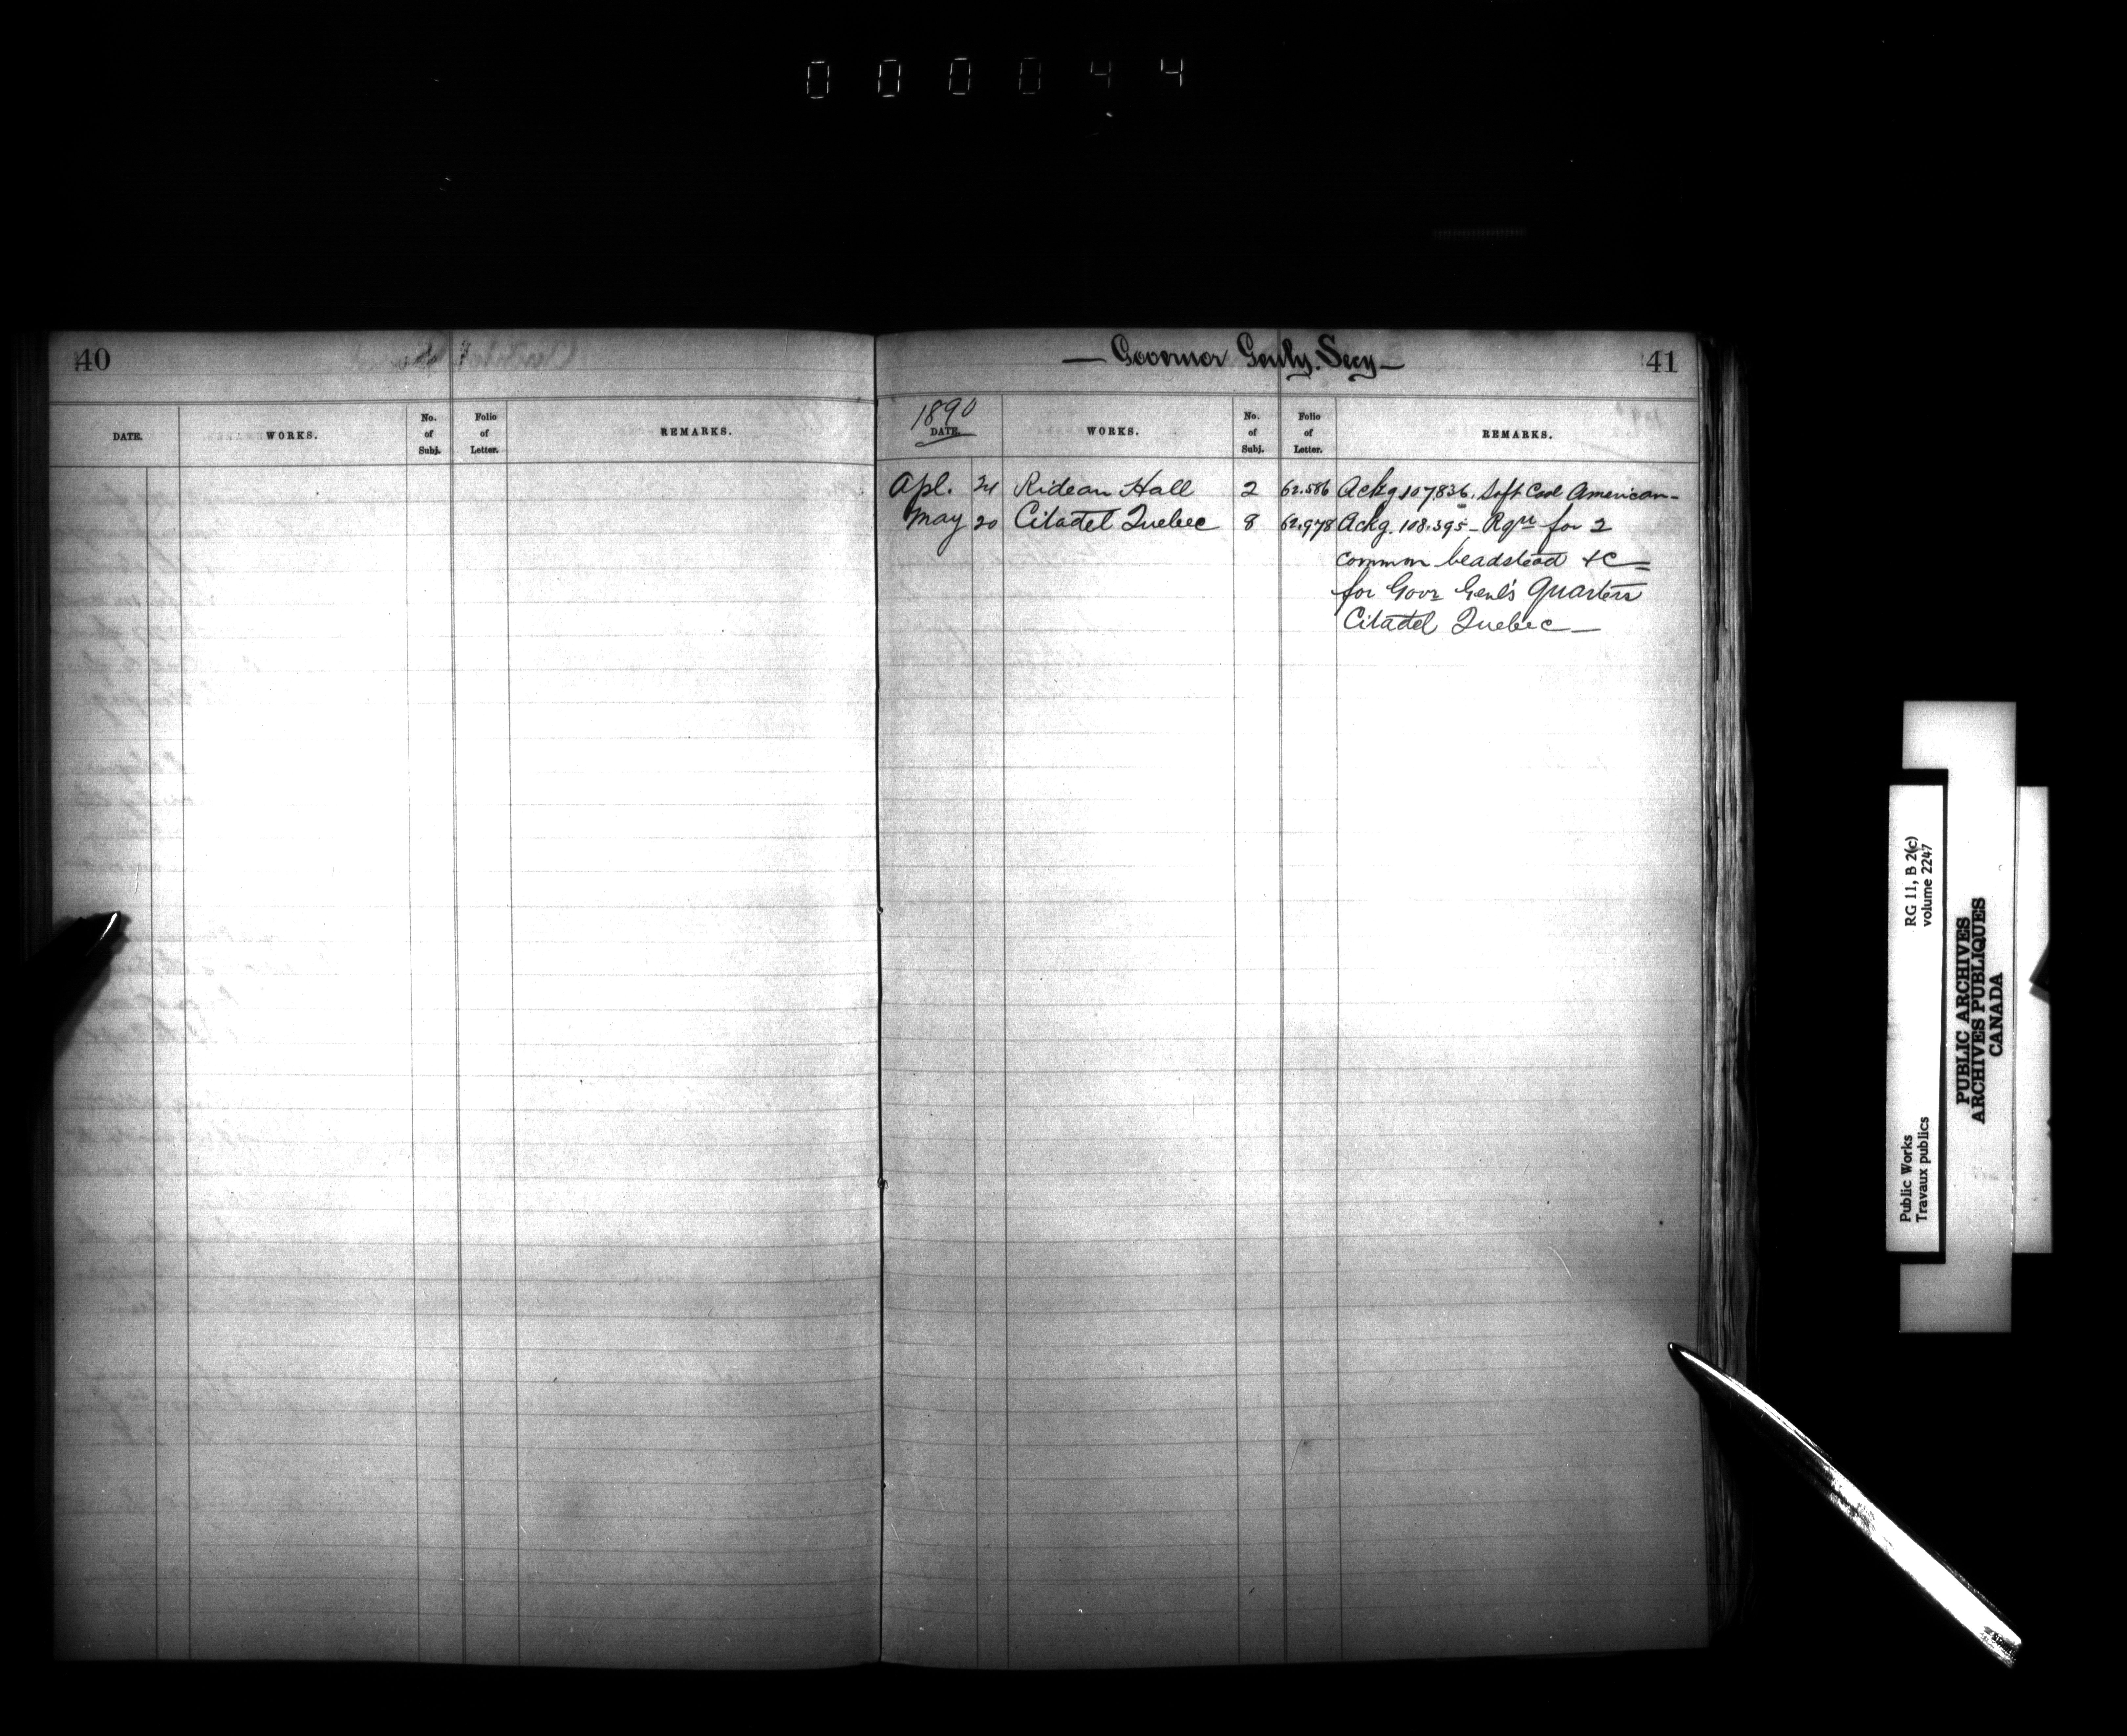 000044
40
DATE. WORKS. No. of Subj. Folio of Letter. REMARKS.
— Governor Genls. Secy — 41
1890
DATE. WORKS. No. of Subj. Folio of Letter. REMARKS.
Apl. 24 Rideau Hall 2 62.586 Ackg 107836. Soft Coal American -
May 20 Citadel Quebec 8 62.978 Ackg. 108.395 - Rqn for 2
common beadstead &c =
for Govr Genl's Quarters
Citadel Quebec —
Public Works
Travaux publics
RG 11, B 2(c)
volume 2247
PUBLIC ARCHIVES
ARCHIVES PUBLIQUES
CANADA